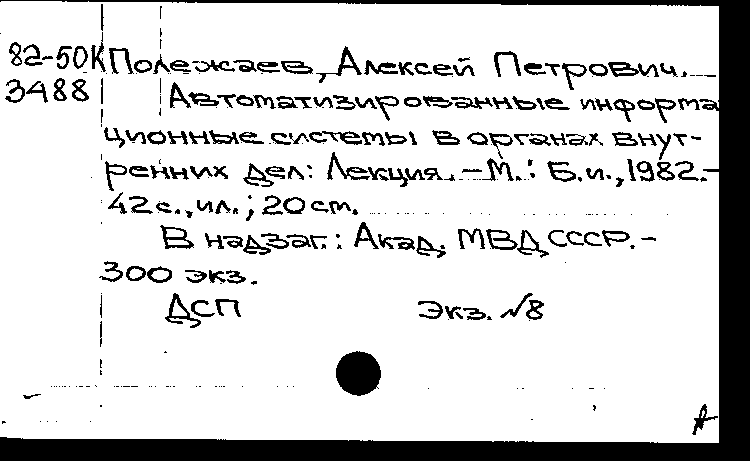 82-50К Полежаев, Алексей Петрович.
3488 Автоматизированные информа
ционные системы в органах внут-
ренних дел: Лекция. - М.: Б.и., 1982.-
42 с., ил.; 20 см.
В надзаг.: Акад. МВД СССР.-
300 экз.
ДСП Экз. №8
А